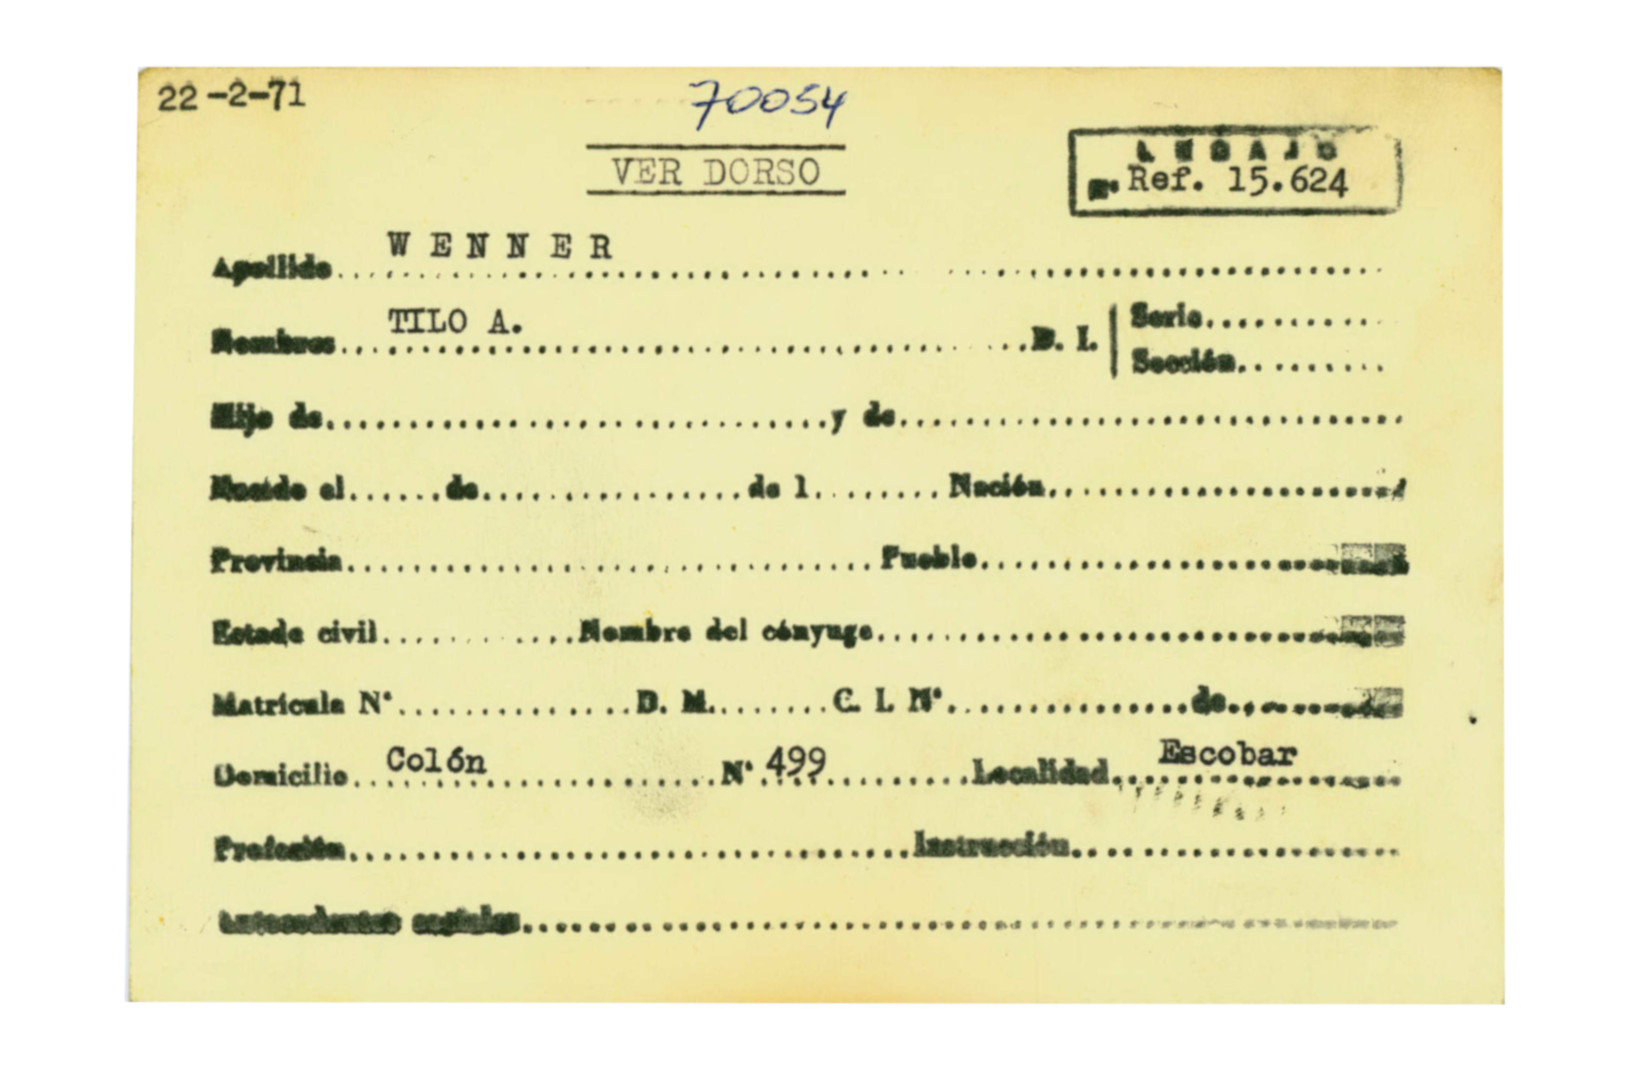 22-2-71
70054
VER DORSO
LEGAJO
Nº Ref. 15.624
Apellido WENNER
Nombres TILO A. D. I. Serie
Sección
Hijo de y de
Nacido el de de 1 Nación
Provincia Pueblo
Estado civil Nombre del cónyuge
Matrícula Nº D. M. C. I. Nº de
Domicilio Colón Nº 499 Localidad Escobar
Profesión Instrucción
Antecedentes sociales